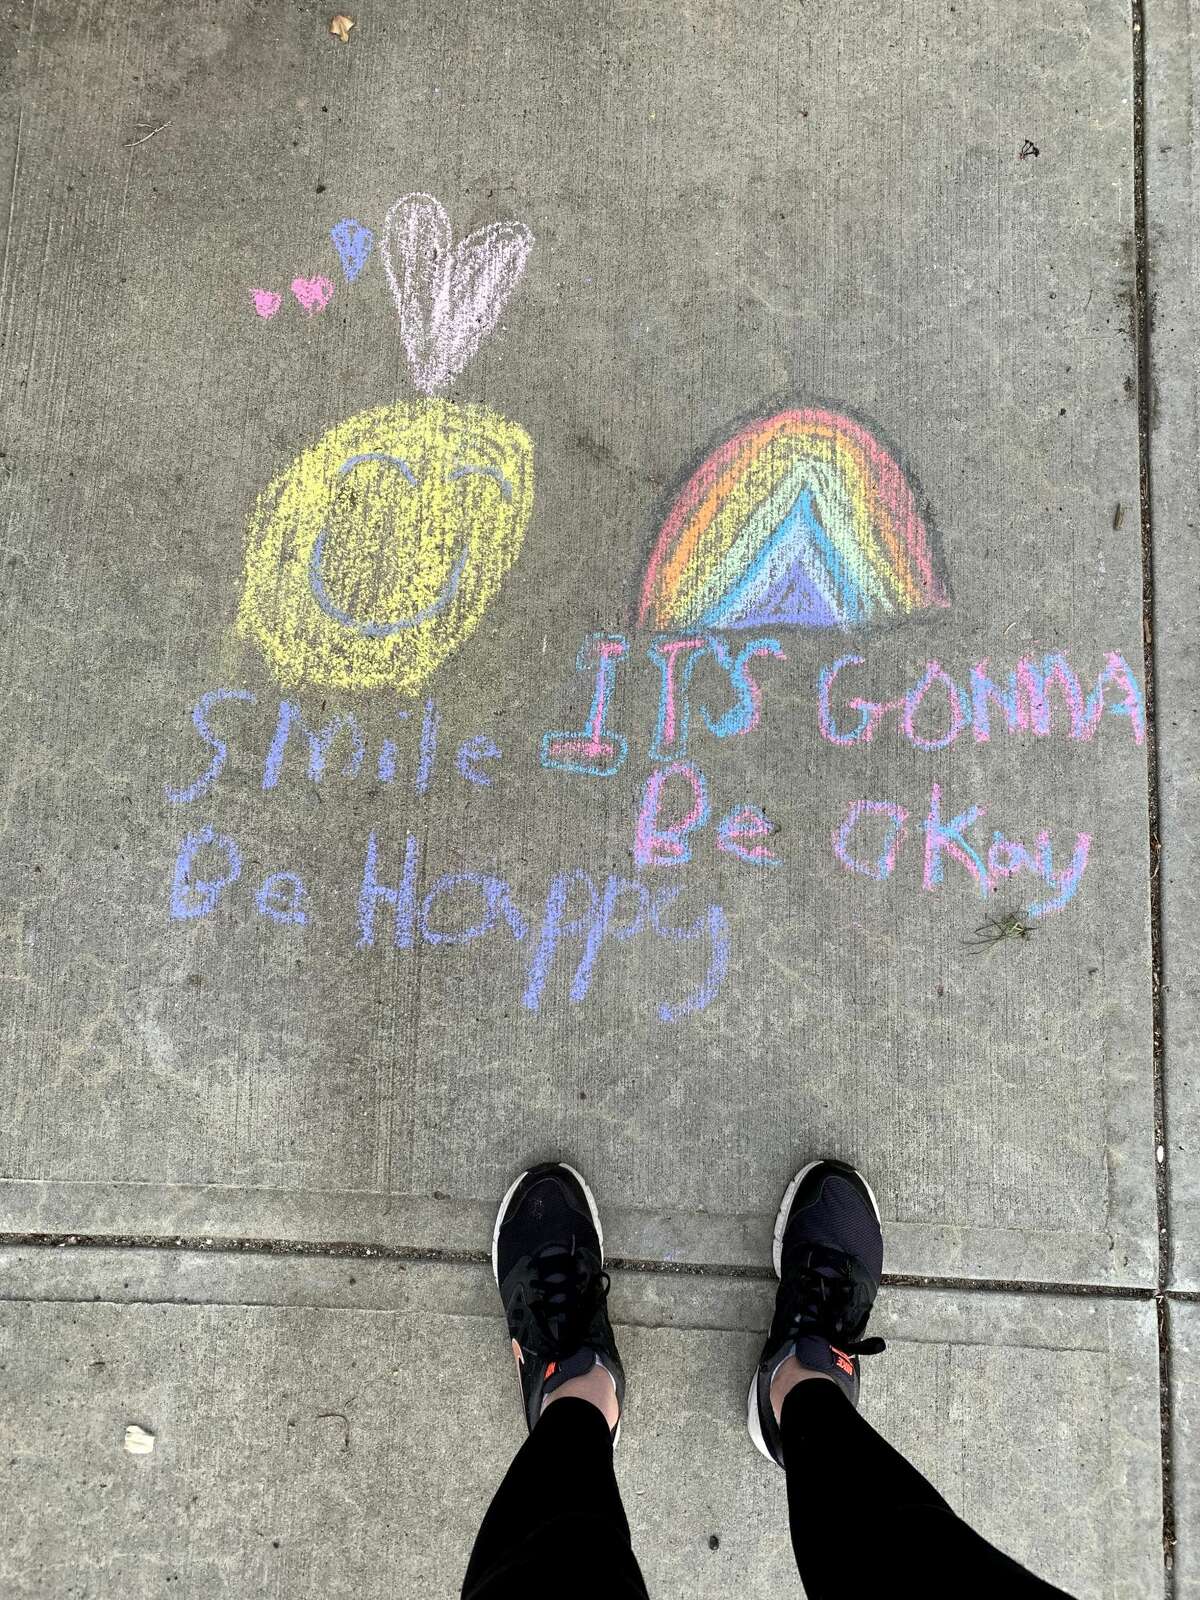 Smile
Be Happy
IT'S GONNA
Be Okay
NIKE